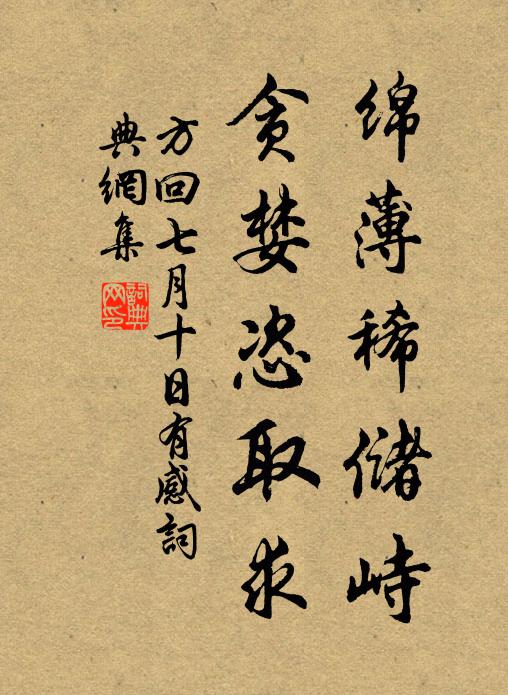 绵薄稀储峙
贪婪恣取求
方回七月十日有感词
典網集
詞典网印